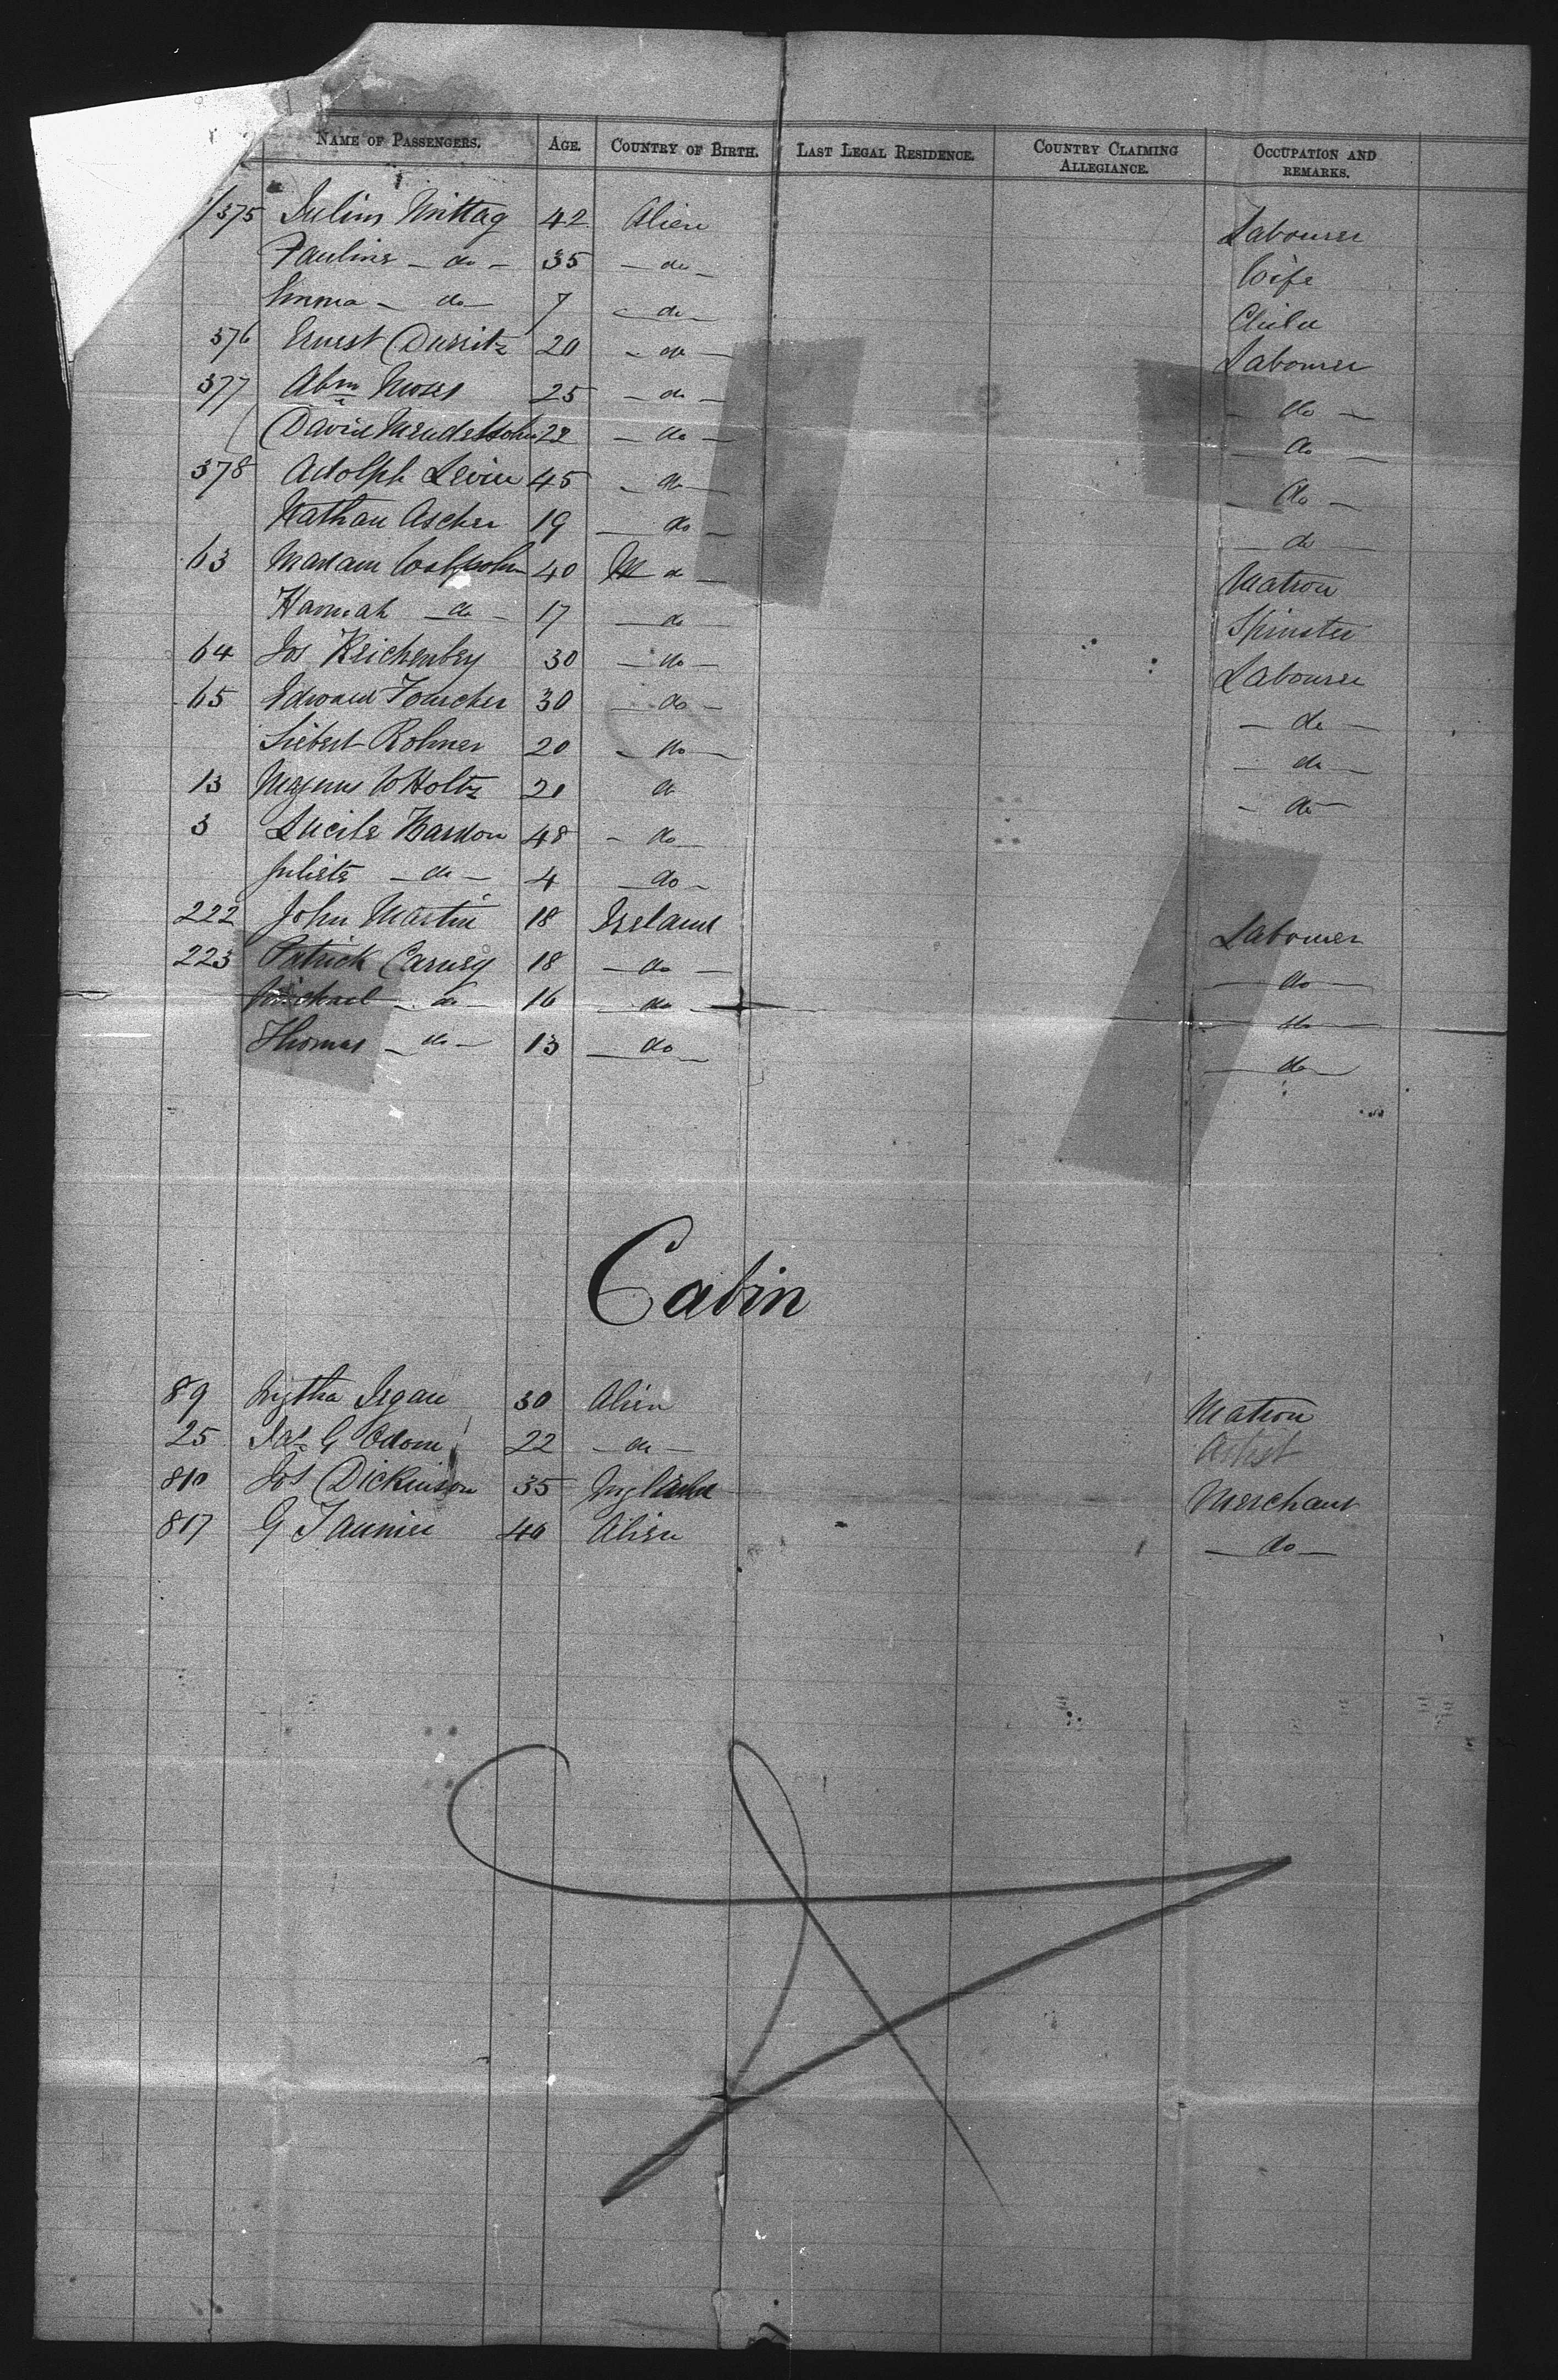 NAME OF PASSENGERS. AGE. COUNTRY OF BIRTH. LAST LEGAL RESIDENCE. COUNTRY CLAIMING ALLEGIANCE. OCCUPATION AND REMARKS.
375 Julius Mittag 42 Alien Labourer
Pauline - do - 35 - do - Wife
Emma - do - 7 - do - Child
376 Ernest 20 - do - Labourer
377 Abm Moses 25 - do - - do -
David Mendelsohn 22 - do - - do -
378 Adolph Levin 45 - do - - do -
Nathan Ascher 19 - do - - do -
63 40 do - Matron
Hannah - do - 17 - do - Spinster
64 Jos Reichenbey 30 - do - Labourer
65 Edward Foucher 30 - do - - do -
Siebert Rohner 20 - do - - do -
13 Magnus W Holtz 21 do - do -
3 Lucile Hardon 48 - do -
Juliete - do - 4 - do -
222 John Martin 18 Ireland Labourer
223 Patrick Carney 18 - do - - do -
Michael - do - 16 - do - - do -
Thomas - do - 13 - do - - do -
Cabin
89 30 Alien Matron
25 Jas G Odom 22 - do - Artist
810 Jos Dickinson 35 England Merchant
817 G 40 Alien - do -